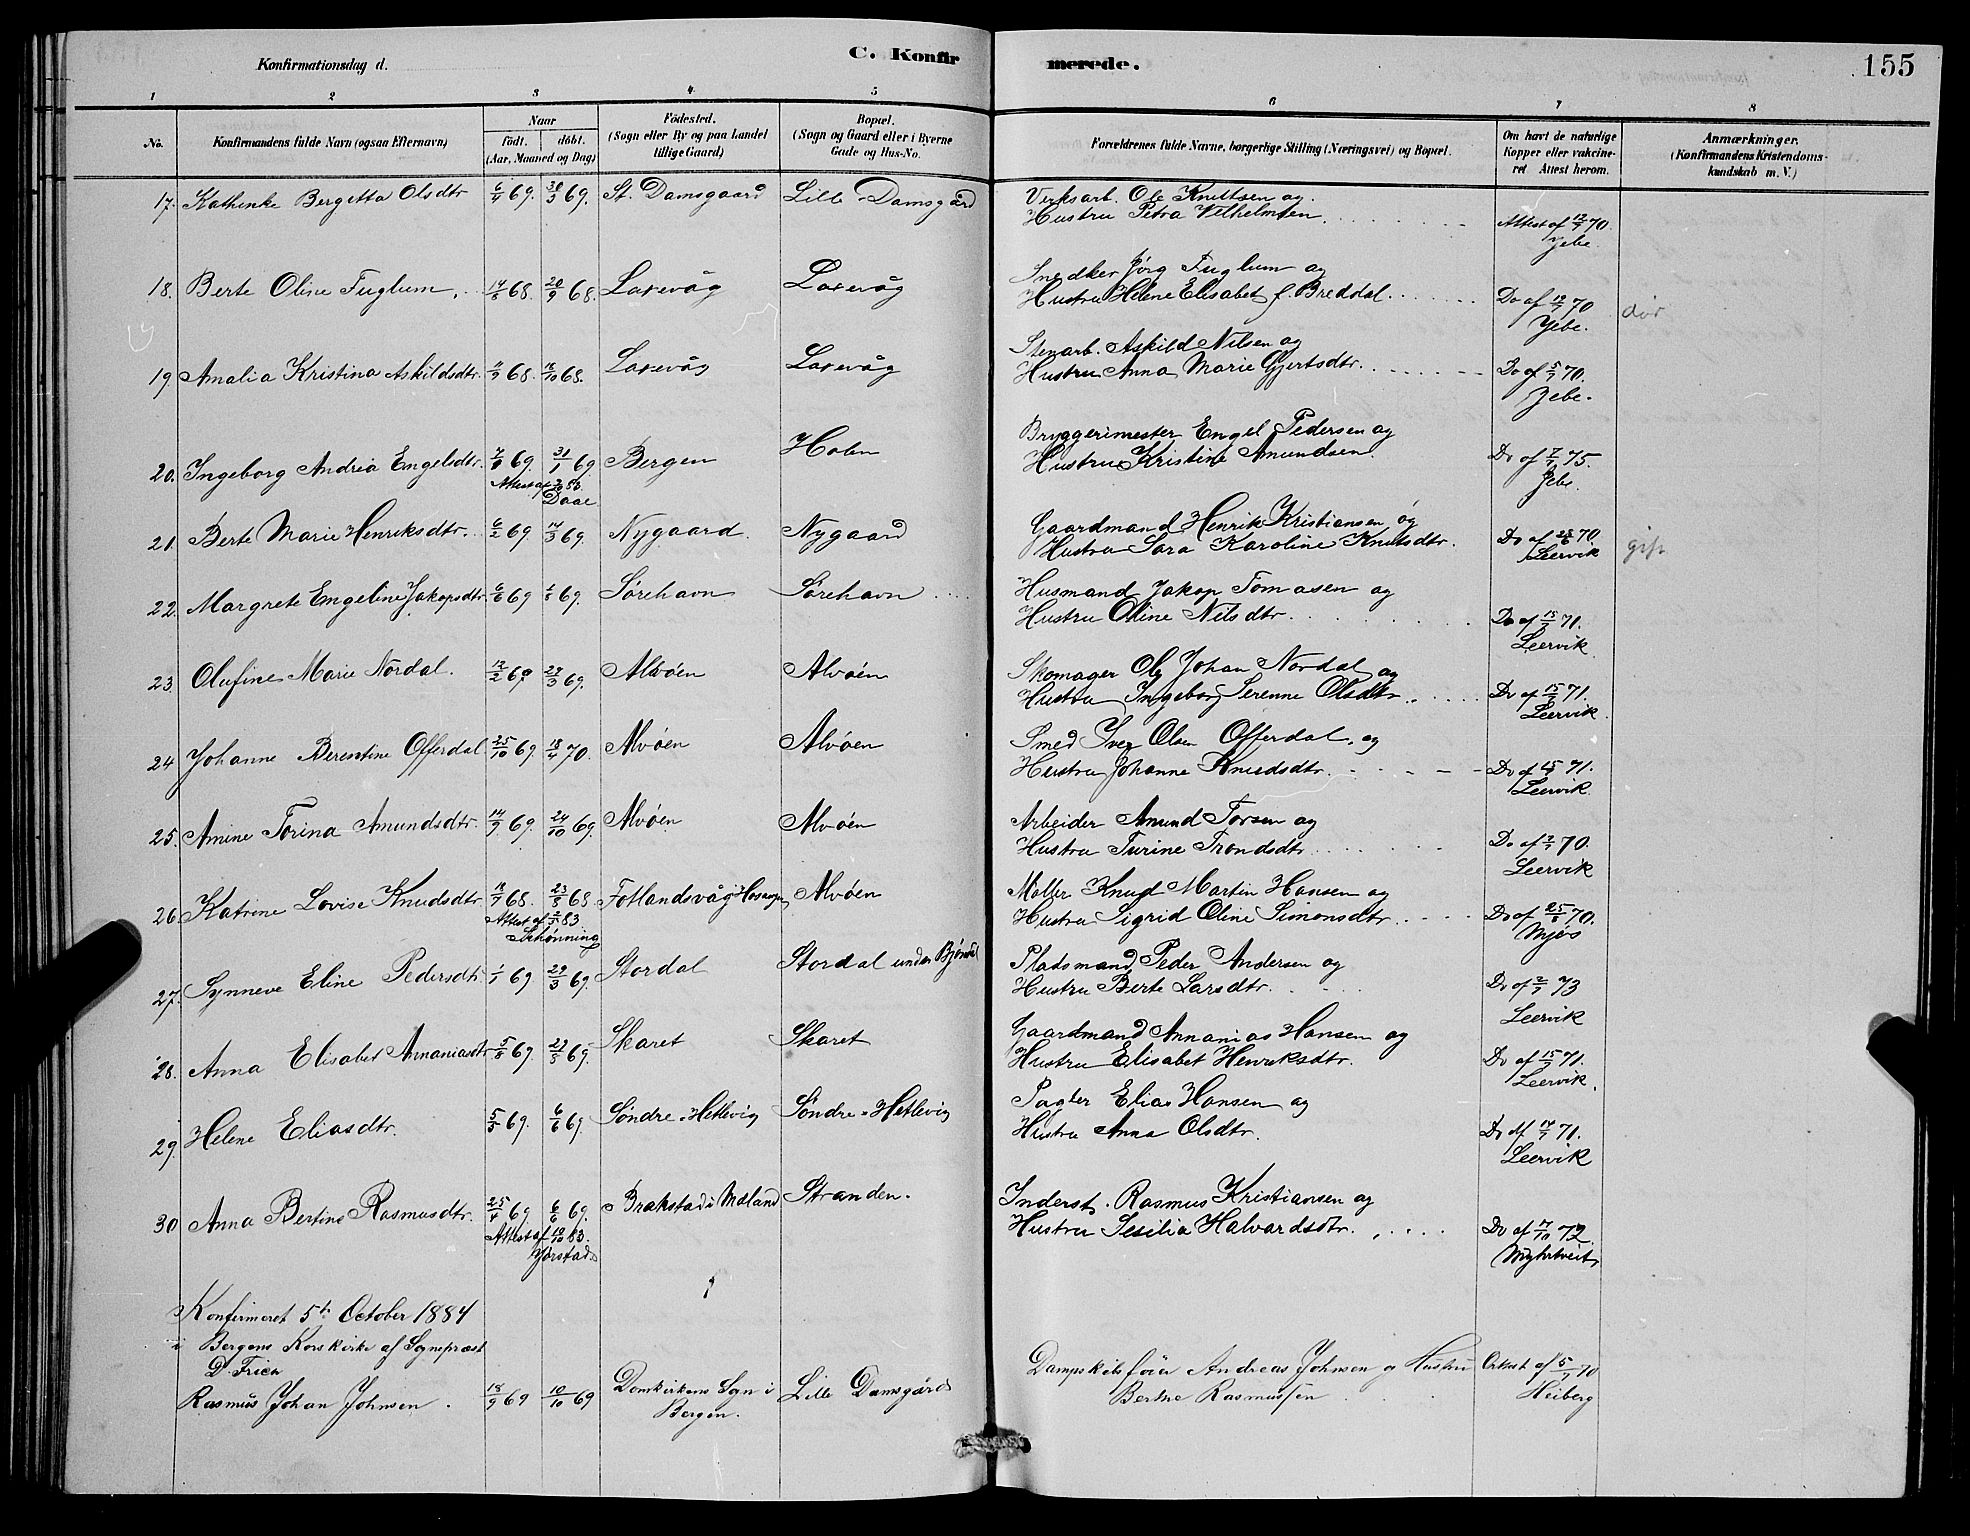 155
Konfirmationsdag d.
C. Konfirmerede.
1 2 3 4 5 6 7 8
No. Konfirmandens fulde Navn (ogsaa Efternavn) Naar født. døbt. (Aar, Maaned og Dag) Fødested. (Sogn eller By og paa Landet tillige Gaard) Bopæl. (Sogn og Gaard eller i Byerne Gade og Hus-No. Forældrenes fulde Navne, borgerlige Stilling (Næringsvei) og Bopæl. Om havt de naturlige Kopper eller vakcineret Attest herom. Anmærkninger. (Konfirmandens Kristendomskundskab m. V.)
17. Kathinke Bergetta Olsdtr 6/4 69. 69. St. Damsgaard Lille Damsgård Verksarb. Ole Knutsen og
Hustru Petra Vilhelmsen Attest af 12/7 70.
Jebe.
18. Berte Oline Fuglum 14/8 68. 20/9 68. Laxevåg Laxevåg Snedker Jørg Fuglum og
Hustru Helene Elisabet f. Breddal Do af 12/7 70 dør
Jebe.
19 Amalia Kristina Askildsdtr. 68. 18/10 68. Laxevåg Laxevåg Stenarb. Askild Nilsen og
Hustru Anna Marie Gjertsdtr. Do af 5/7 70.
Jebe.
20. Ingeborg Andrea Engelsdtr. 69. 31/1 69. Bergen Holen Bryggerimester Engel Pedersen og
Attest af 83. Hustru Kristine Amundsen. Do af 7/7 75.
Daae Jebe.
21. Berte Marie Henriksdtr. 6/2 69 14/3 69. Nygaard. Nygaard Gaardmand Henrik Kristiansen og
Hustru Sara Karoline Knutsdtr. Do af 28/6 70. gift
Leervik
22. Margrete Engeline Jakopsdtr. 6/6 69 1/8 69. Sørehavn Sørehavn Husmand Jakop Tomasen og
Hustru Oline Nilsdtr. Do af 15/7 71.
Leervik
23. Olufine Marie Nordal. 12/2 69 29/3 69. Alvøen Alvøen Skomager Ole Johan Nordal og
Hustru Ingeborg Serenne Olsdtr. Do af 15/7 71.
Leervik.
24 Johanne Berentine Offerdal 25/10 69. 18/4 70. Alvøen Alvøen Smed Iver Olsen Offerdal, og
Hustru Johanne Knudsdtr. Do af 15/7 71.
Leervik
25. Amine Torina Amundsdtr. 14/9 69. 24/10 69. Alvøen Alvøen Arbeider Amund Torsen og
Hustru Turine Trondsdtr. Do af 2/7 70.
Leervik
26. Katrine Lovise Knudsdtr 18/7 68. 23/8 68 Fotlandsvåg Hosanger Alvøen Møller Knud Martin Hansen og
Attest af 83 Hustru Sigrid Oline Simonsdtr. Do af 25/6 70.
Schønning Mjøs
27. Synneve Eline Pedersdtr. 1/1 69 29/3 69. Stordal Stordal under Bjøndal Pladsmand Peder Andersen og
Hustru Berte Larsdtr. Do af 2/7 73
Leervik
28. Anna Elisabet Annaniasdtr 69. 69. Skaret Skaret Gaardmand Annanias Hansen og
Hustru Elisabet Henriksdtr. Do af 15/7 71.
Leervik.
29. Helene Eliasdtr. 5/5 69. 6/6 69. Søndre-Hetlevig Søndre-Hetlevig Pagter Elias Hansen og
Hustru Anna Olsdtr. Do af 17/7 71.
Leervik
30 Anna Bertine Rasmusdtr. 25/4 69 6/6 69. Brakstad i Mæland Stranden. Inderst. Rasmus Kristiansen og
Attest af 83. Hustru Sesilia Halvardsdtr. Do af 17/10 72.
Jørstad Myhrtveit
Konfirmeret 5te October 1884
i Bergens Korskirke af Sognepræst
D. Frich
Rasmus Johan Johnsen. 18/9 69 10/10 69 Domkirkens Sogn i Bergen. Lille Damsgård Dampskibsfører Andreas Johnsen og Hustru
Berthe Rasmussen Attest af 5/7 70
Heiberg